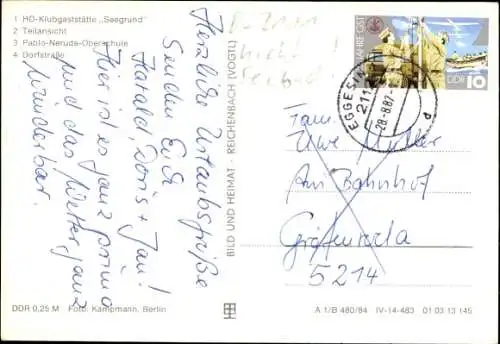 1 HO-Klubgaststätte „Seegrund"
2 Teilansicht
3 Pablo-Neruda-Oberschule
4 Dorfstraße
Herzliche Urlaubsgrüße
senden Euch
Harald, Doris + Jan!
Hier ist es ganz prima
und das Wetter ganz
wunderbar.
BILD UND HEIMAT · REICHENBACH (VOGTL)
JAHRE GST
DDR 10
EGGESIN
211
28-8.87
d
Fam.
Uwe Müller
Am Bahnhof
Gräfenroda
5214
DDR 0,25 M Foto: Kampmann, Berlin
A 1/B 480/84 IV-14-483 01 03 13 145